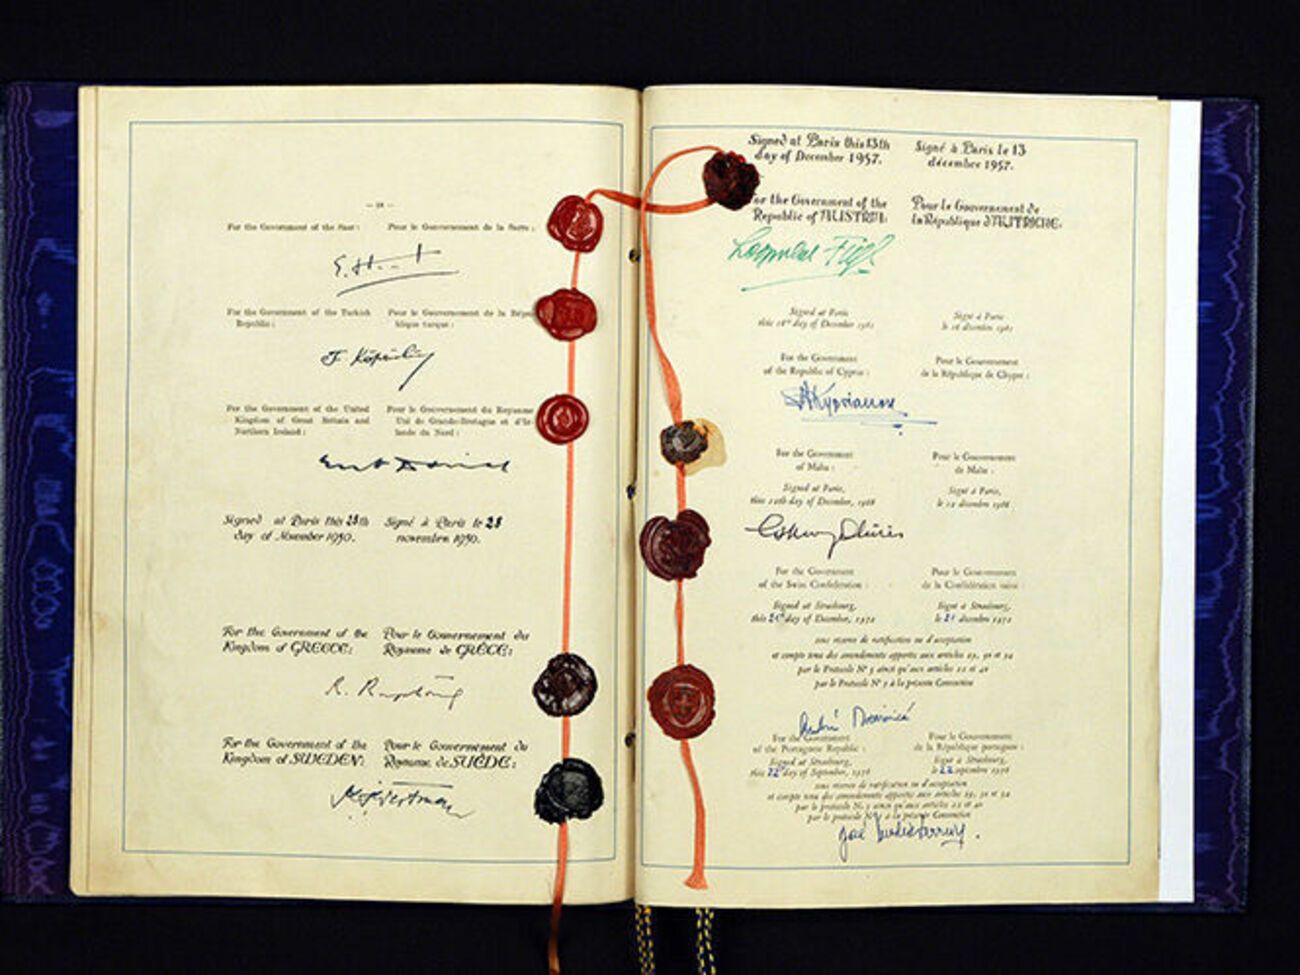 — 18 —
For the Government of the Saar :
Pour le Gouvernement de la Sarre :
For the Government of the Turkish
Republic :
Pour le Gouvernement de la Répu-
blique turque :
For the Government of the United
Kingdom of Great Britain and
Northern Ireland :
Pour le Gouvernement du Royaume
Uni de Grande-Bretagne et d'Ir-
lande du Nord :
Signed at Paris this 28th
day of November 1950.
Signé à Paris le 28
novembre 1950.
For the Government of the
Kingdom of GREECE:
Pour le Gouvernement du
Royaume de GRÈCE:
For the Government of the
Kingdom of SWEDEN:
Pour le Gouvernement du
Royaume de SUÈDE:
Signed at Paris this 13th
day of December 1957.
Signé à Paris le 13
décembre 1957.
For the Government of the
Republic of AUSTRIA:
Pour le Gouvernement de
la République d'AUTRICHE:
Leopold Figl
Signed at Paris
this 16th day of December 1961
Signé à Paris
le 16 décembre 1961
For the Government
of the Republic of Cyprus :
Pour le Gouvernement
de la République de Chypre :
For the Government
of Malta :
Pour le Gouvernement
de Malte :
Signed at Paris,
this 12th day of December, 1966
Signé à Paris,
le 12 décembre 1966
For the Government
of the Swiss Confederation :
Pour le Gouvernement
de la Confédération suisse :
Signed at Strasbourg,
this 21st day of December, 1972
Signé à Strasbourg,
le 21 décembre 1972
sous réserve de ratification ou d'acceptation
et compte tenu des amendements apportés aux articles 29, 30 et 34
par le Protocole N° 3 ainsi qu'aux articles 22 et 40
par le Protocole N° 5 à la présente Convention
For the Government
of the Portuguese Republic :
Pour le Gouvernement
de la République portugaise :
Signed at Strasbourg,
this 22nd day of September, 1976
Signé à Strasbourg,
le 22 septembre 1976
sous réserve de ratification ou d'acceptation
et compte tenu des amendements apportés aux articles 29, 30 et 34
par le protocole N° 3 ainsi qu'aux articles 22 et 40
par le protocole N° 5 à la présente Convention